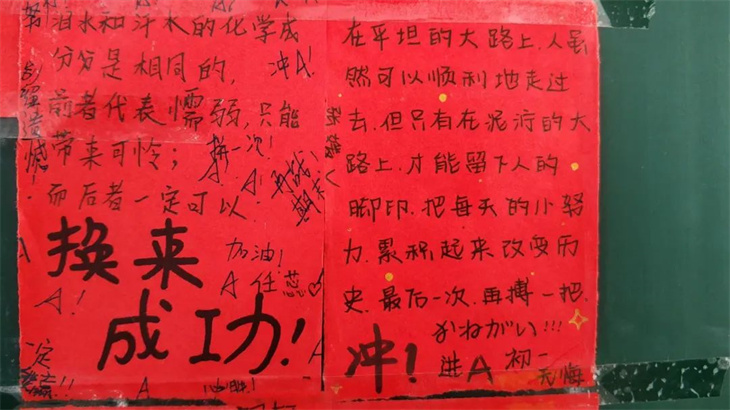 泪水和汗水的化学成
份分是相同的，
冲A！
前者代表懦弱，只能
带来可怜；
拚一次！
而后者一定可以
A！
加油！
A 任蕊♡
换来
成功！
A！
A
在平坦的大路上，人虽
然可以顺利地走过
去，但只有在泥泞的大
路上，才能留下人的
脚印，把每天的小努
力，累积起来改变历
史，最后一次，再搏一把，
おねがい!!!
冲！
进A 初一
无悔